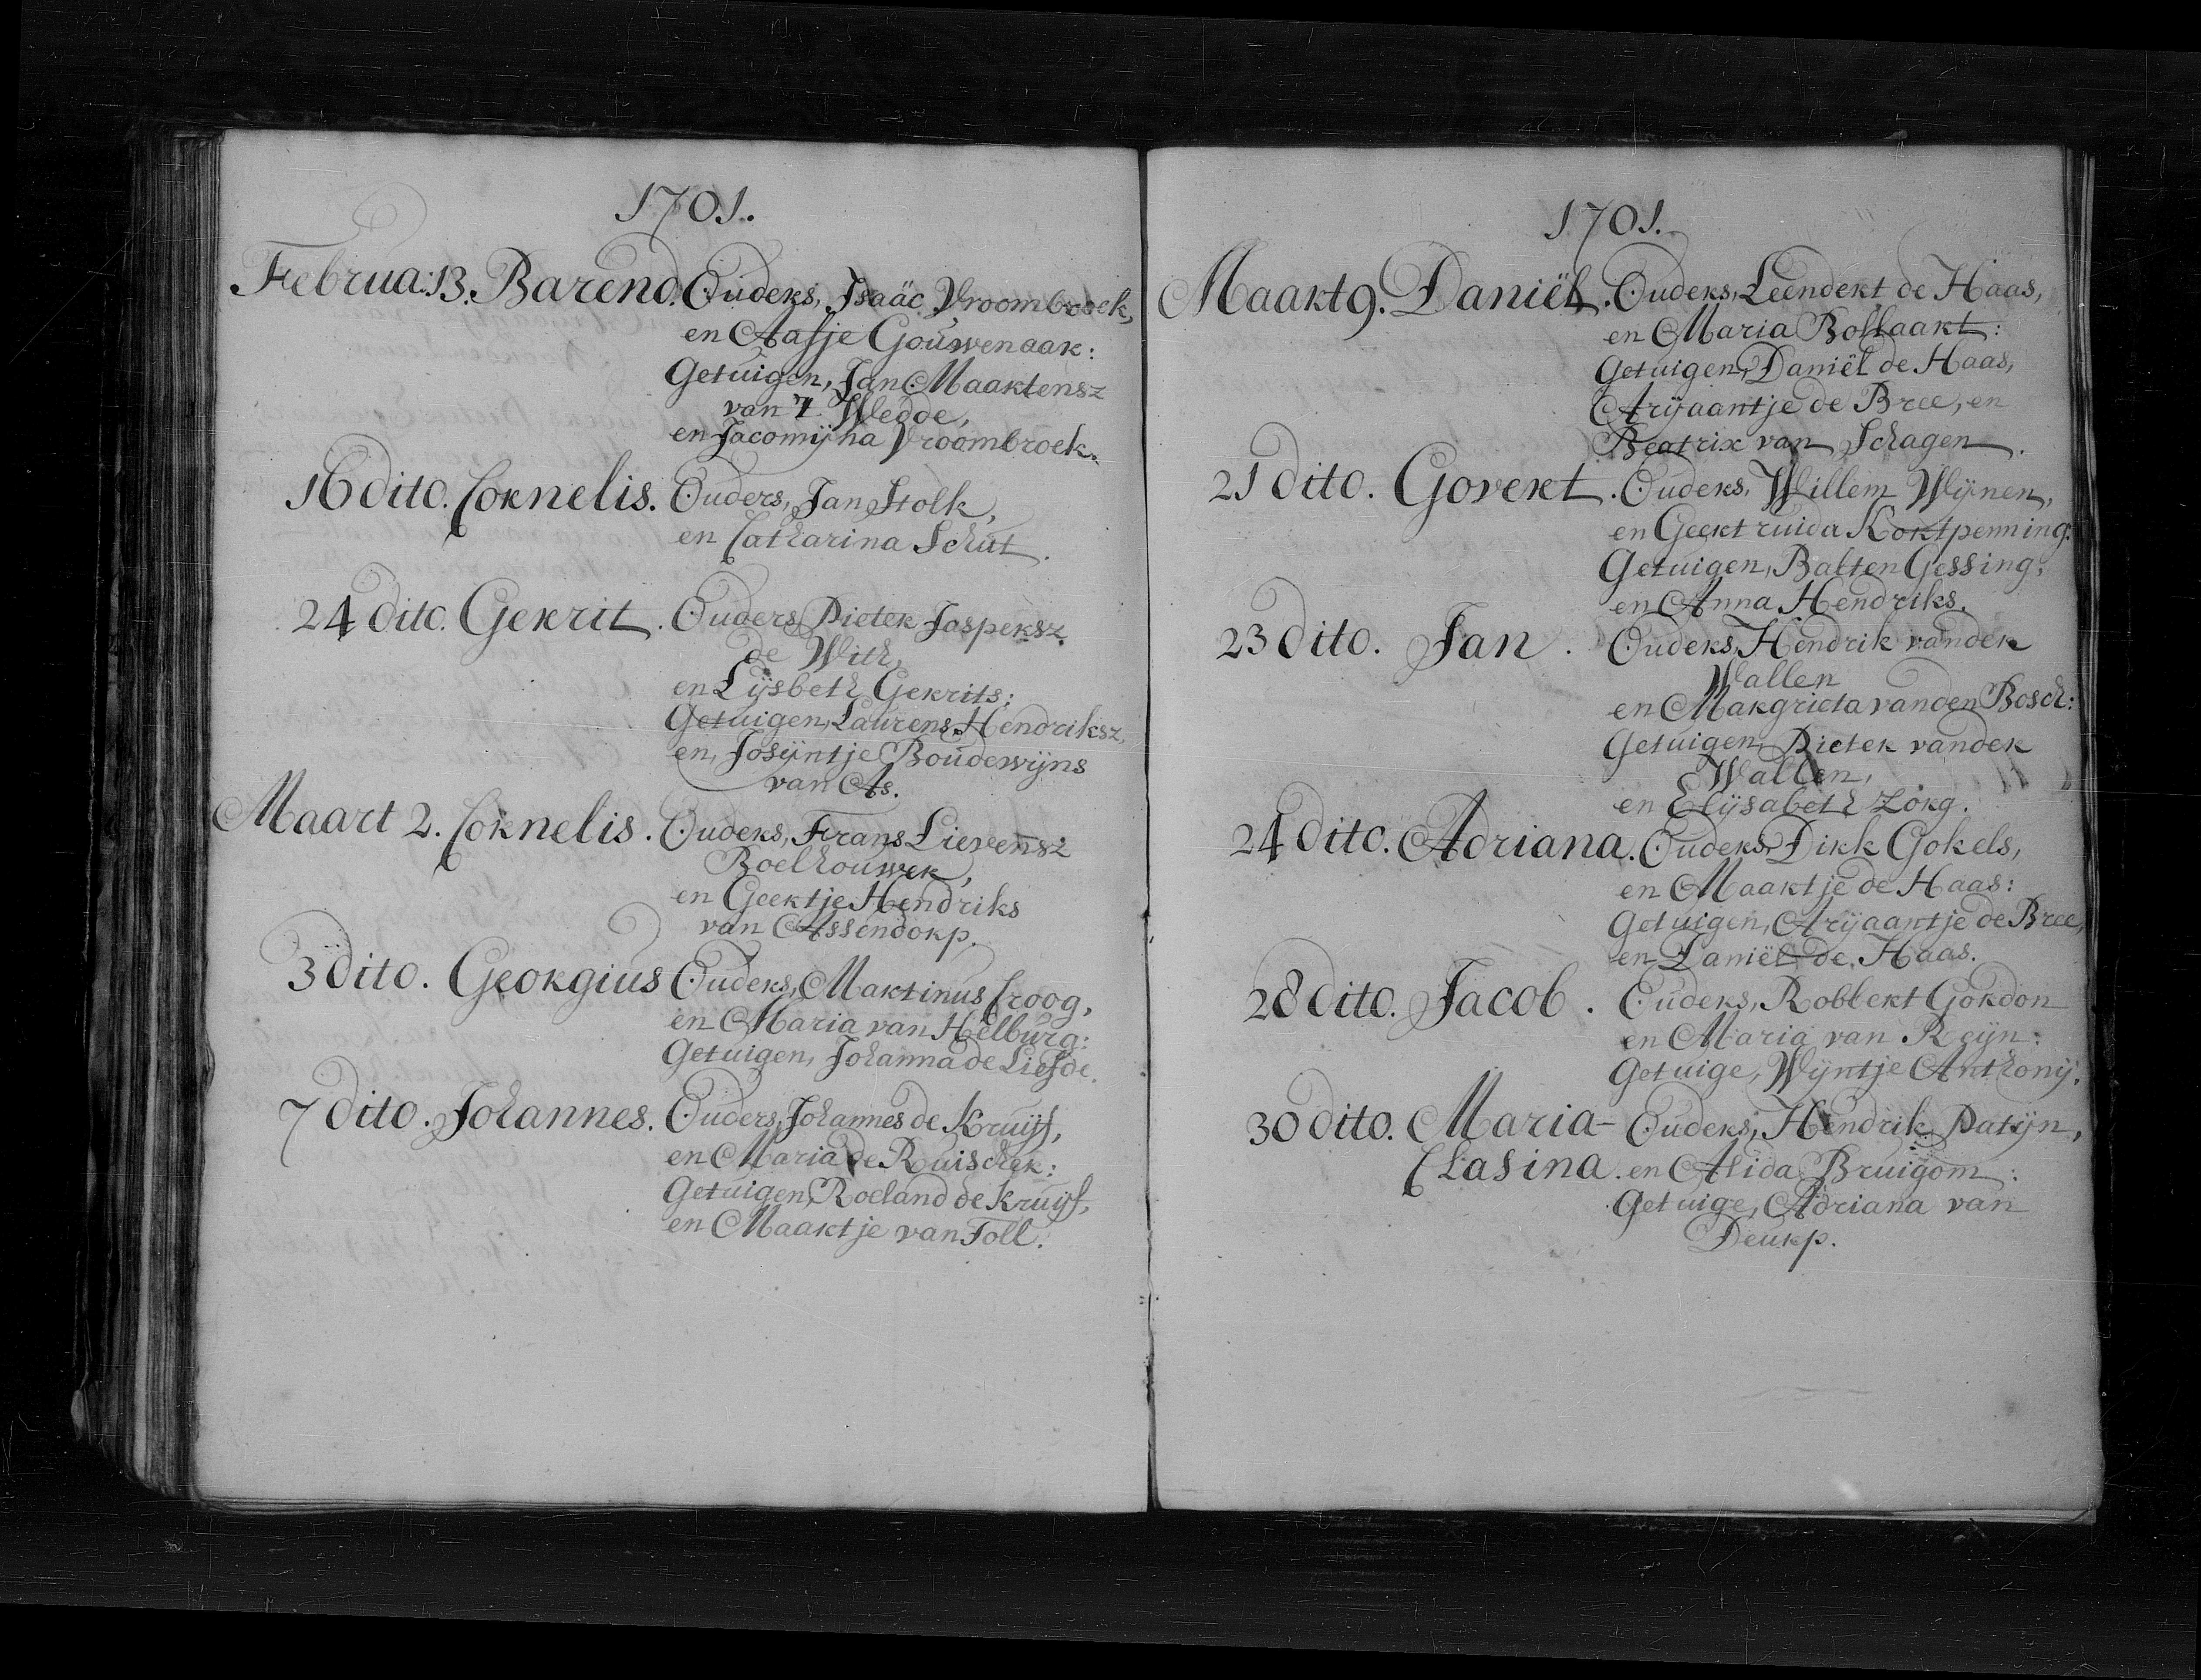 1701.
Februa: 13. Barend. Ouders, Isaäc Vroombroek,
en Aafje Gouwenaar:
Getuigen, Jan Maartensz
van 't Wedde,
en Jacomijna Vroombroek.
16 dito. Cornelis. Ouders, Jan Stolk,
en Catharina Schut.
24 dito. Gerrit. Ouders, Pieter Jaspersz
de With,
en Lijsbeth Gerrits:
Getuigen, Laurens Hendriksz,
en, Josijntje Boudewijns
van As.
Maart 2. Cornelis. Ouders, Frans Lievensz
Boelhouwer,
en Geertje Hendriks
van Assendorp.
3 dito. Georgius Ouders, Martinus Croog,
en Maria van Helburg:
Getuigen, Johanna de Liefde.
7 dito. Johannes. Ouders, Johannes de Kruijf,
en Maria de Ruischer:
Getuigen, Roeland de Kruijf,
en Maartje van Toll.
1701.
Maart 9. Daniël. Ouders, Leendert de Haas,
en Maria Bollaart:
Getuigen, Daniël de Haas,
Arijaantje de Bree, en
Beatrix van Schagen.
21 dito. Govert. Ouders, Willem Wijnen,
en Geertruida Kortpenning.
Getuigen, Balten Gessing,
en Anna Hendriks.
23 dito. Jan. Ouders, Hendrik vander
Wallen
en Margrieta vanden Bosch:
Getuigen, Pieter vander
Wallen,
en Elijsabeth Zorg.
24 dito. Adriana. Ouders, Dirk Gokels,
en Maartje de Haas:
Getuigen, Arijaantje de Bree,
en Daniël de Haas.
28 dito. Jacob. Ouders, Robbert Gordon
en Maria van Reijn:
Getuige, Wijntje Anthonij.
30 dito. Maria- Ouders, Hendrik Patijn,
Clasina. en Alida Bruigom:
Getuige, Adriana van
Deurp.